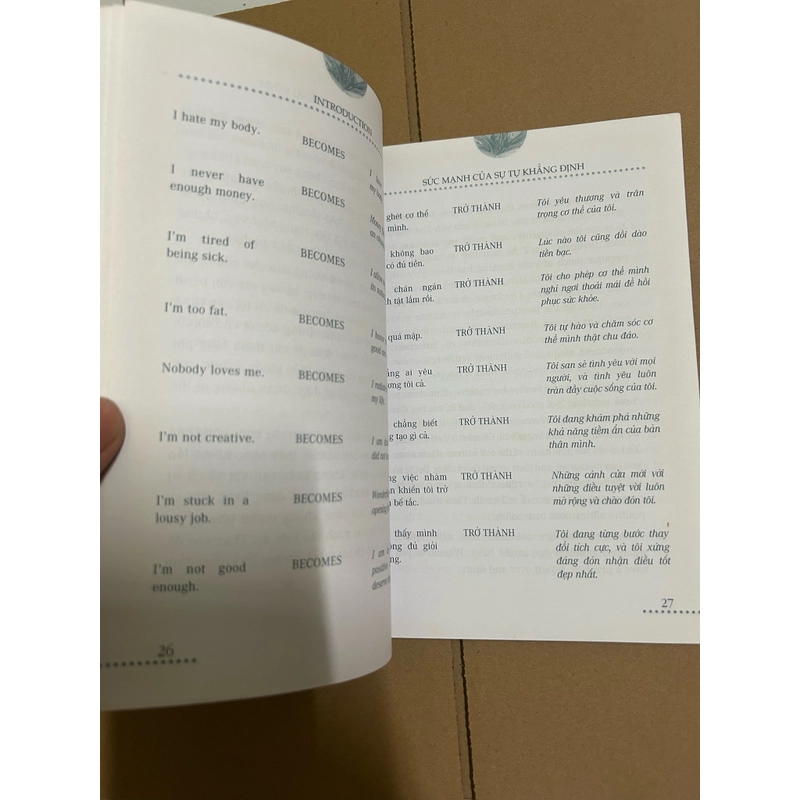 INTRODUCTION
I hate my body.
BECOMES
I never have
enough money.
BECOMES
I'm tired of
being sick.
BECOMES
I'm too fat.
BECOMES
Nobody loves me.
BECOMES
my life.
I'm not creative.
BECOMES
I am
did not
I'm stuck in a
lousy job.
BECOMES
opening
I'm not good
enough.
BECOMES
I am
positive
deserve
26
SỨC MẠNH CỦA SỰ TỰ KHẲNG ĐỊNH
ghét cơ thể
mình.
TRỞ THÀNH
Tôi yêu thương và trân
trọng cơ thể của tôi.
không bao
có đủ tiền.
TRỞ THÀNH
Lúc nào tôi cũng dồi dào
tiền bạc.
chán ngán
tật lắm rồi.
TRỞ THÀNH
Tôi cho phép cơ thể mình
nghỉ ngơi thoải mái để hồi
phục sức khỏe.
quá mập.
TRỞ THÀNH
Tôi tự hào và chăm sóc cơ
thể mình thật chu đáo.
ai yêu
tôi cả.
TRỞ THÀNH
Tôi san sẻ tình yêu với mọi
người, và tình yêu luôn
tràn đầy cuộc sống của tôi.
chẳng biết
tạo gì cả.
TRỞ THÀNH
Tôi đang khám phá những
khả năng tiềm ẩn của bản
thân mình.
việc nhàm
khiến tôi trở
bế tắc.
TRỞ THÀNH
Những cánh cửa mới với
những điều tuyệt vời luôn
mở rộng và chào đón tôi.
thấy mình
đủ giỏi
TRỞ THÀNH
Tôi đang từng bước thay
đổi tích cực, và tôi xứng
đáng đón nhận điều tốt
đẹp nhất.
27